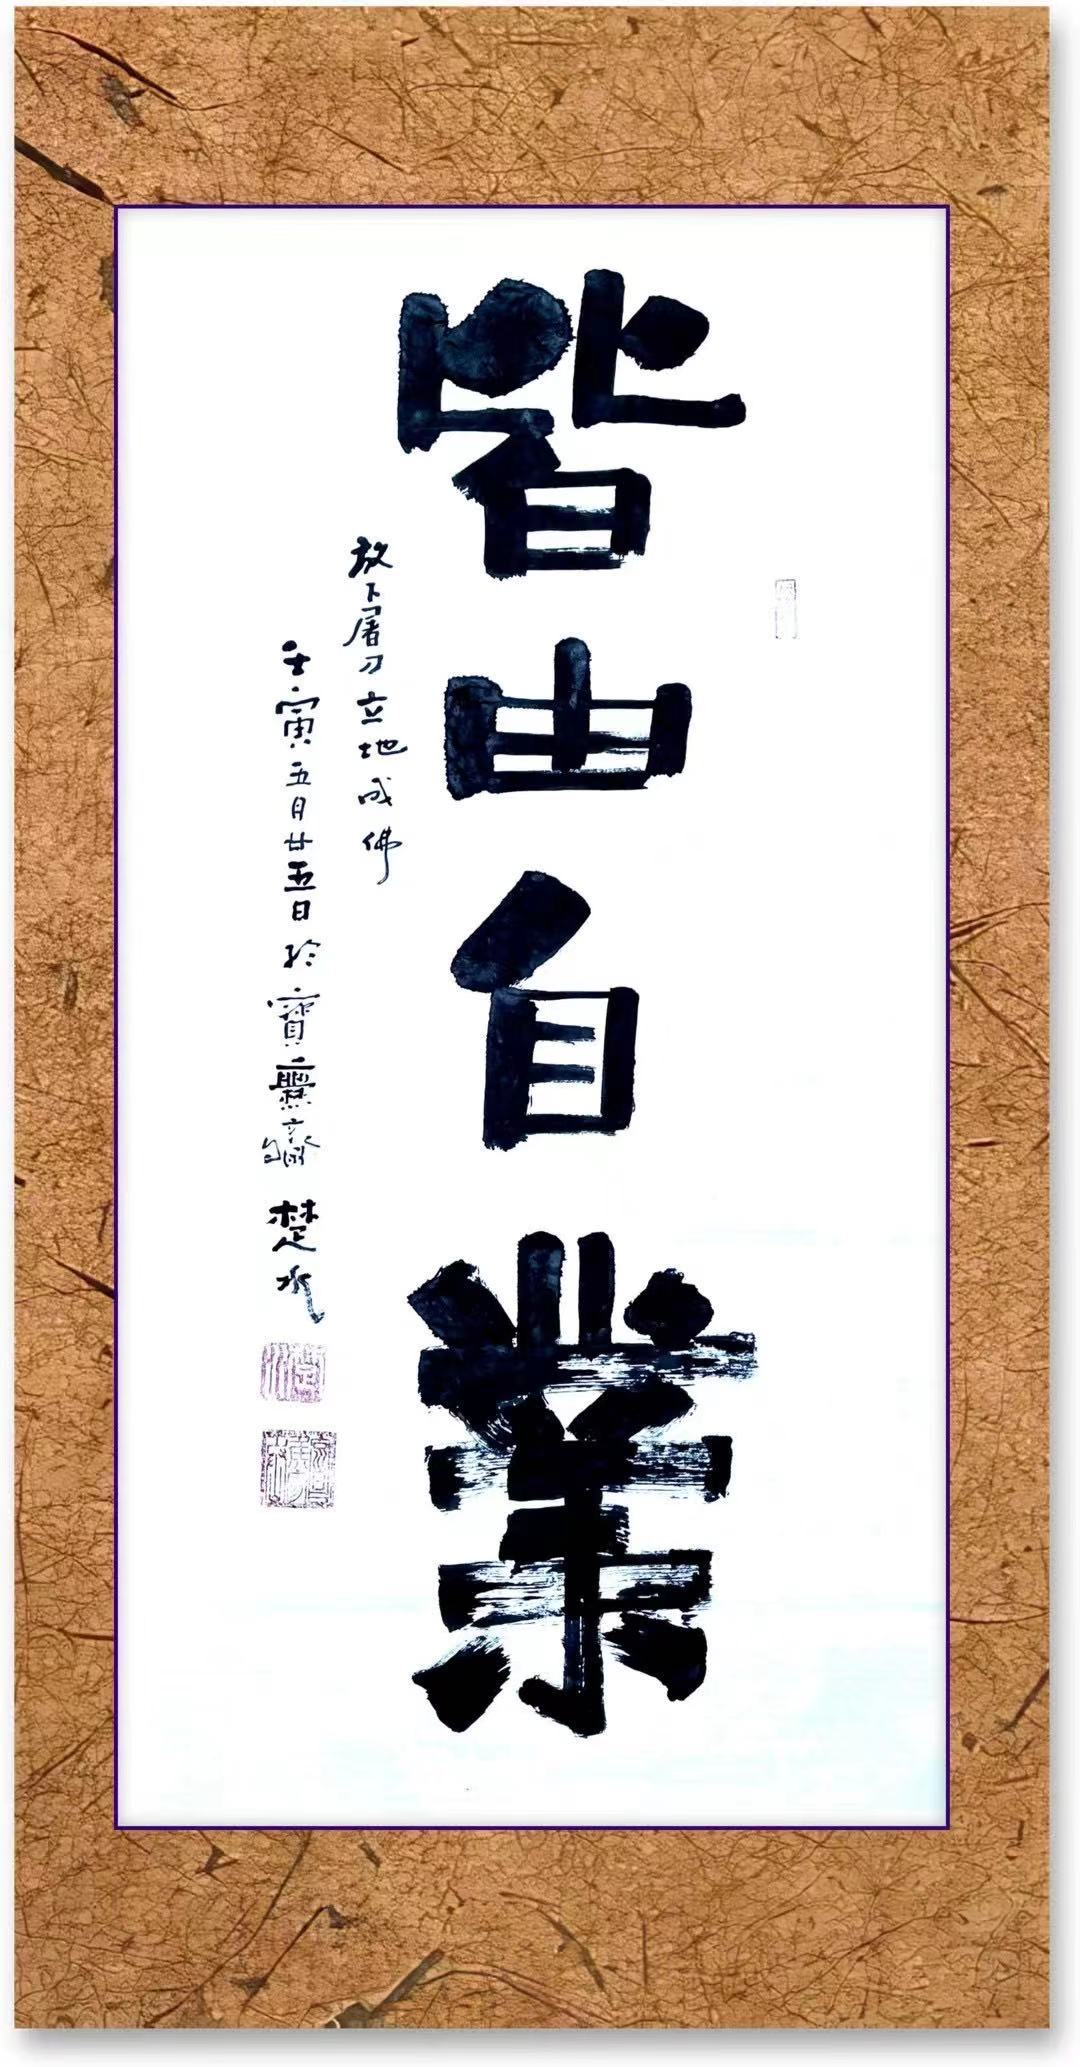 皆由自業
放下屠刀立地成佛
壬寅五月廿五日於寶爨齋 楚水